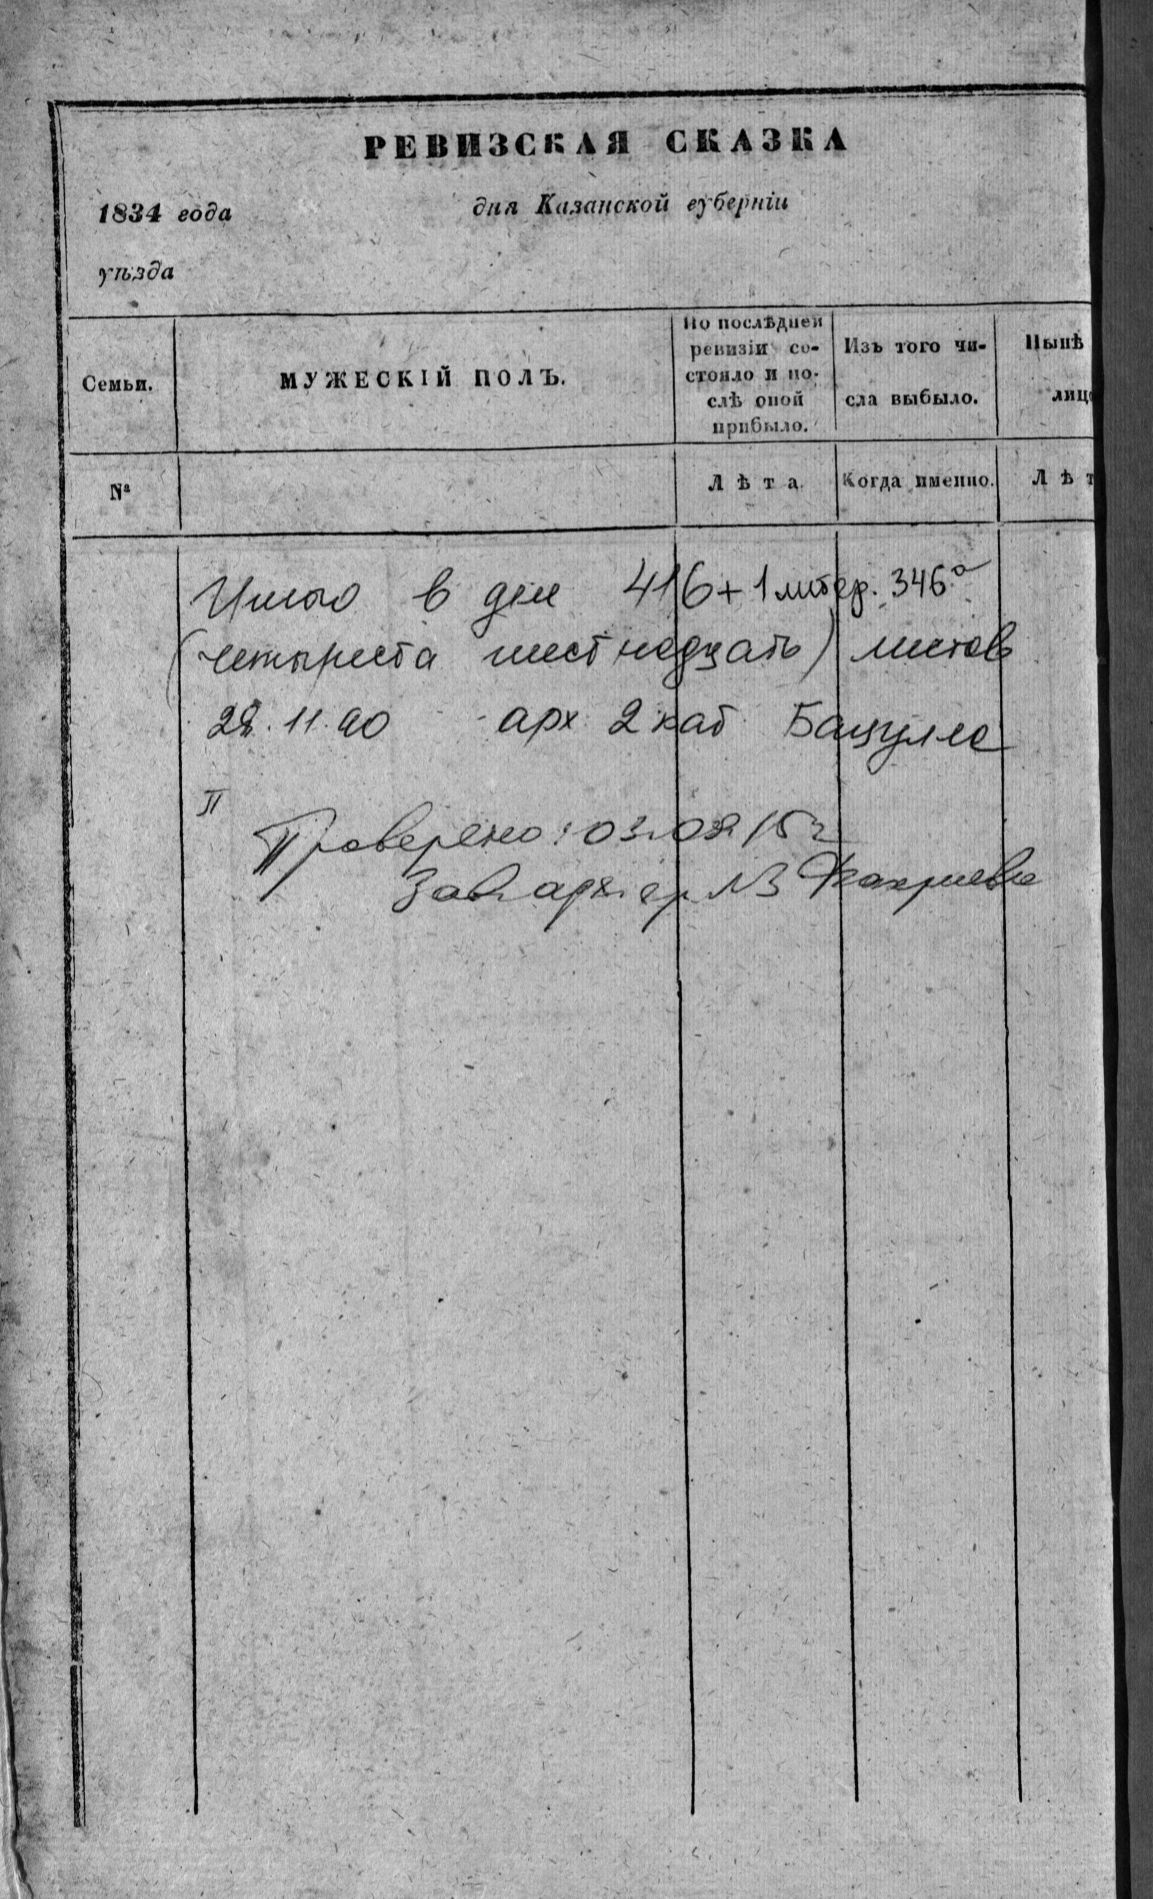 РЕВИЗСКАЯ СКАЗКА
1834 года дня Казанской губерніи
уѣзда
Семьи.
МУЖЕСКІЙ ПОЛЪ.
По послѣдней
ревизіи со-
стояло и по-
слѣ оной
прибыло.
Изъ того чи-
сла выбыло.
Нынѣ
лицо
№
Лѣта.
Когда именно.
Лѣт
Итого в деле 416 + 1 литер. 346а
(четыреста шестнадцать) листов
28.11.90 арх 2 кат
П
Проверено: 03.08 15г
Зав. арх-ер №3